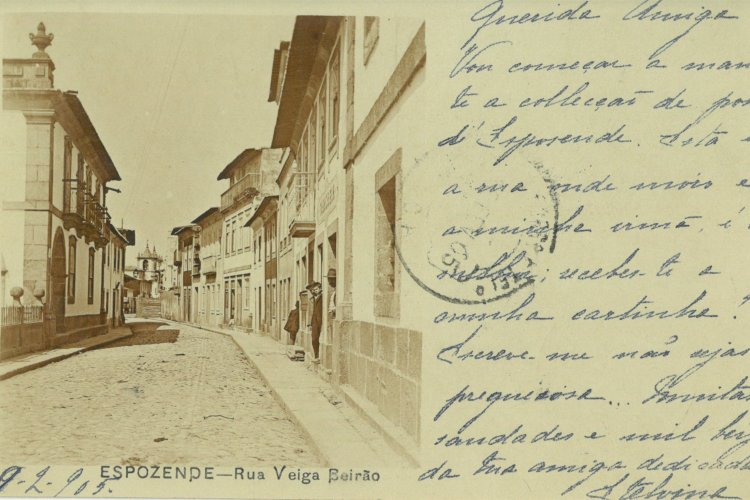 Querida Amiga
Vou começar a man
te a collecçaõ de pos
d'Esposende. Esta
a rua onde móro e
a minha irmã, é
recebes-te a
minha cartinha?
Escreve-me naõ sejas
preguiçosa... Muitas
saudades e mil beij
da tua amiga dedicada
Etelvina
9-2-905.
ESPOZENDE—Rua Veiga Beirão